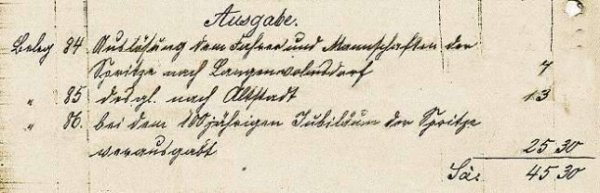 Ausgabe.
Beleg 84. Auslösung dem Führer und Mannschaften der
Spritze nach Langenwolmsdorf 7
" 85 desgl. nach Altstadt 13
" 86. bei dem 100 jährigen Jubiläum der Spritze
verausgabt 25 30
Sa: 45 30